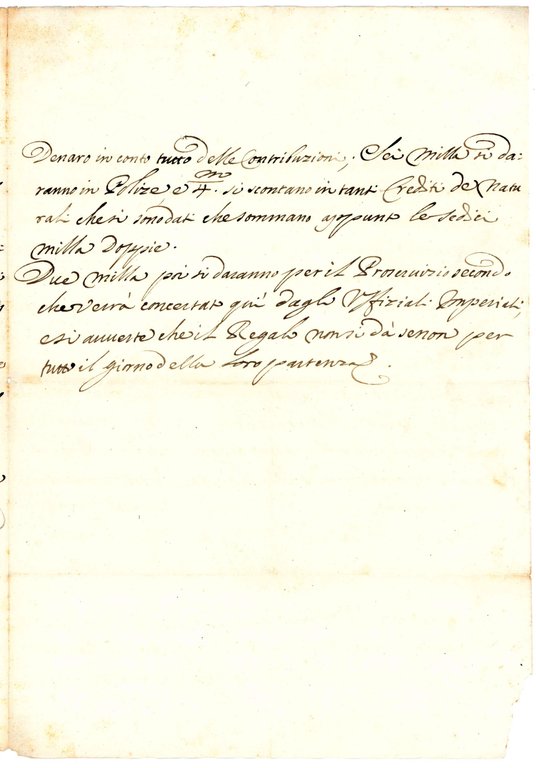 Denaro in conto tutto delle Contribuzioni; Sei milla si da:
ranno in Polize e 4.m si scontano in tanti Crediti de Natu
rali che si sono dati che sommano appunto le sedici
milla Doppie.
Due milla poi si daranno per il Proservizio secondo
che verrà concertat qui dagli Uffiziali Imperiali,
e si avverte che il Regalo non si dà se non per
tutto il giorno della loro partenza.